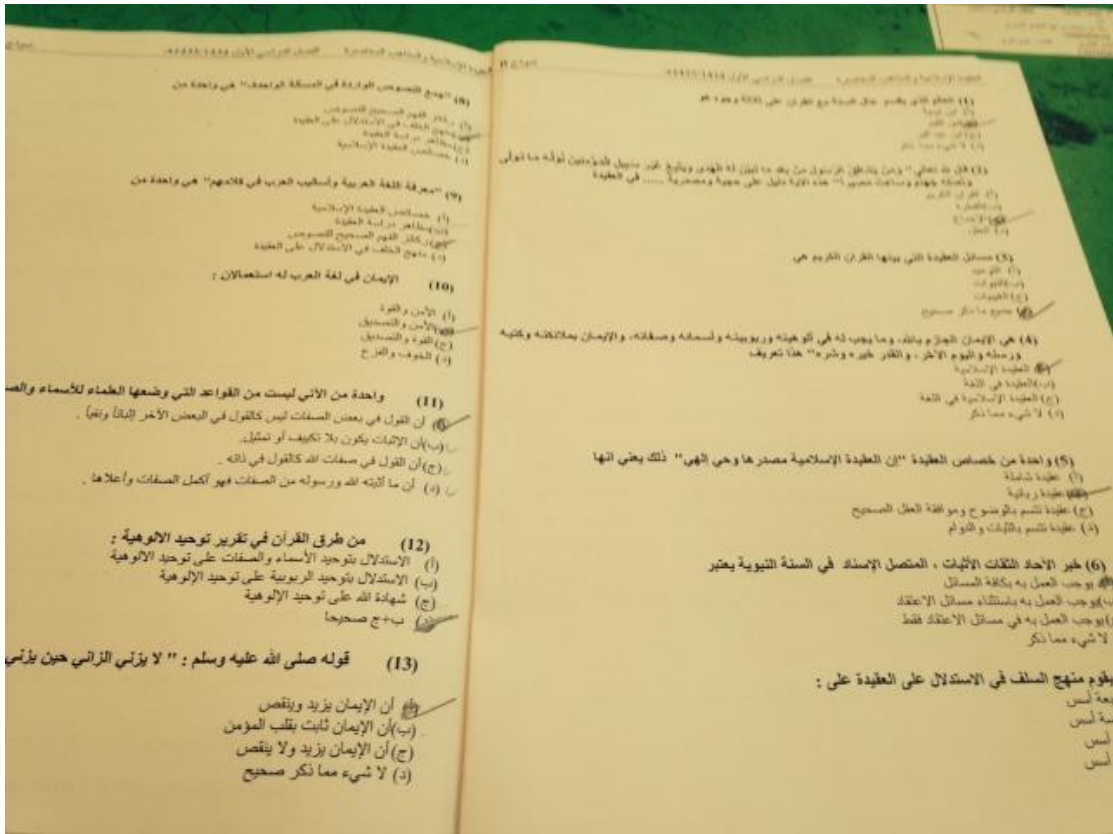 العقيدة الإسلامية والمذاهب المعاصرة الفصل الدراسي الأول
(1) العالم الذي يقسم حال السنة مع القرآن على ثلاثة وجوه هو
(أ) ابن تيمية
ابن القيم
(ج) ابن عبد البر
(د) لا شيء مما ذكر
(2) قال الله تعالى " ومن يشاقق الرسول من بعد ما تبين له الهدى ويتبع غير سبيل المؤمنين نوله ما تولى
ونصله جهنم وساءت مصيرا" هذه الآية دليل على حجية ومصدرية ...... في العقيدة
(أ) القرآن الكريم
(ب) الفطرة
الإجماع
(د) العقل
(3) مسائل العقيدة التي بينها القرآن الكريم هي
(أ) التوحيد
(ب) النبوات
(ج) الغيبيات
جميع ما ذكر صحيح
(4) هي الإيمان الجازم بالله، وما يجب له في ألوهيته وربوبيته وأسمائه وصفاته، والإيمان بملائكته وكتبه
ورسله واليوم الآخر، والقدر خيره وشره" هذا تعريف
العقيدة الإسلامية
(ب) العقيدة في اللغة
(ج) العقيدة الإسلامية في اللغة
(د) لا شيء مما ذكر
(5) واحدة من خصاص العقيدة "إن العقيدة الإسلامية مصدرها وحي إلهي" ذلك يعني انها
(أ) عقيدة شاملة
عقيدة ربانية
(ج) عقيدة تتسم بالوضوح وموافقة العقل الصحيح
(د) عقيدة تتسم بالثبات والدوام
(6) خبر الآحاد الثقات الأثبات ، المتصل الإسناد في السنة النبوية يعتبر
يوجب العمل به بكافة المسائل
يوجب العمل به باستثناء مسائل الاعتقاد
يوجب العمل به في مسائل الاعتقاد فقط
لا شيء مما ذكر
يقوم منهج السلف في الاستدلال على العقيدة على :
أسس
أسس
أسس
أسس
العقيدة الإسلامية والمذاهب المعاصرة الفصل الدراسي الأول
(8) "جمع النصوص الواردة في المسألة الواحدة،" هي واحدة من
(أ) ركائز الفهم الصحيح للنصوص
منهج الخلف في الاستدلال على العقيدة
(ج) مظاهر دراسة العقيدة
(د) خصائص العقيدة الإسلامية
(9) "معرفة اللغة العربية وأساليب العرب في كلامهم" هي واحدة من
(أ) خصائص العقيدة الإسلامية
(ب) مظاهر دراسة العقيدة
ركائز الفهم الصحيح للنصوص
(د) منهج الخلف في الاستدلال على العقيدة
(10) الإيمان في لغة العرب له استعمالان :
(أ) الأمن والقوة
الأمن والتصديق
(ج) القوة والتصديق
(د) الخوف والفزع
(11) واحدة من الآتي ليست من القواعد التي وضعها العلماء للأسماء
أن القول في بعض الصفات ليس كالقول في البعض الآخر إثباتاً ونفياً .
(ب) أن الإثبات يكون بلا تكييف أو تمثيل.
(ج) أن القول في صفات الله كالقول في ذاته .
(د) أن ما أثبته الله ورسوله من الصفات فهو أكمل الصفات وأعلاها .
(12) من طرق القرآن في تقرير توحيد الالوهية :
(أ) الاستدلال بتوحيد الأسماء والصفات على توحيد الالوهية
(ب) الاستدلال بتوحيد الربوبية على توحيد الإلوهية
(ج) شهادة الله على توحيد الإلوهية
(د) ب+ج صحيحا
(13) قوله صلى الله عليه وسلم : " لا يزني الزاني حين يزني
أن الإيمان يزيد وينقص
(ب) أن الإيمان ثابت بقلب المؤمن
(ج) أن الإيمان يزيد ولا ينقص
(د) لا شيء مما ذكر صحيح